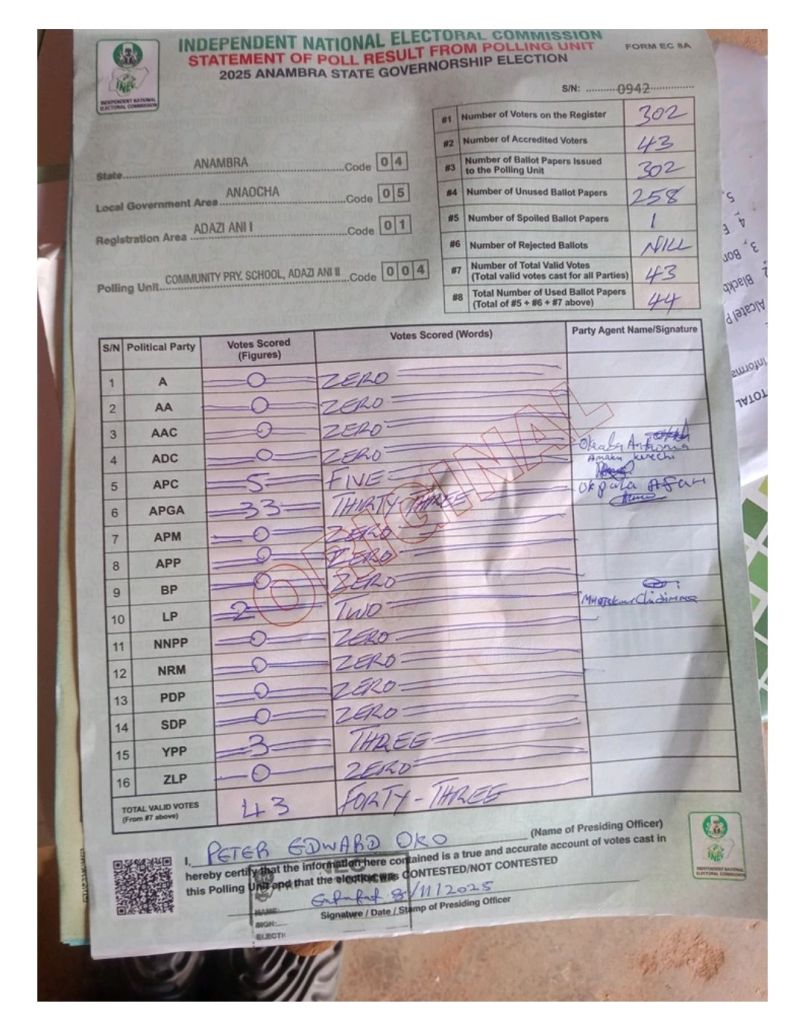 INDEPENDENT NATIONAL ELECTORAL COMMISSION
STATEMENT OF POLL RESULT FROM POLLING UNIT
2025 ANAMBRA STATE GOVERNORSHIP ELECTION
FORM EC 8A
INDEPENDENT NATIONAL ELECTORAL COMMISSION
S/N: 0942
State ANAMBRA Code 0 4
Local Government Area ANAOCHA Code 0 5
Registration Area ADAZI ANI I Code 0 1
Polling Unit COMMUNITY PRY. SCHOOL, ADAZI ANI II Code 0 0 4
#1 Number of Voters on the Register 302
#2 Number of Accredited Voters 43
#3 Number of Ballot Papers Issued to the Polling Unit 302
#4 Number of Unused Ballot Papers 258
#5 Number of Spoiled Ballot Papers 1
#6 Number of Rejected Ballots NILL
#7 Number of Total Valid Votes (Total valid votes cast for all Parties) 43
#8 Total Number of Used Ballot Papers (Total of #5 + #6 + #7 above) 44
S/N Political Party Votes Scored (Figures) Votes Scored (Words) Party Agent Name/Signature
1 A 0 ZERO
2 AA 0 ZERO
3 AAC 0 ZERO
4 ADC 0 ZERO
5 APC 5 FIVE
6 APGA 33 THIRTY THREE
7 APM 0 ZERO
8 APP 0 ZERO
9 BP 0 ZERO
10 LP 2 TWO
11 NNPP 0 ZERO
12 NRM 0 ZERO
13 PDP 0 ZERO
14 SDP 0 ZERO
15 YPP 3 THREE
16 ZLP 0 ZERO
TOTAL VALID VOTES (From #7 above) 43 FORTY-THREE
ORIGINAL
I, PETER EDWARD OKO (Name of Presiding Officer)
hereby certify that the information here contained is a true and accurate account of votes cast in
this Polling Unit and that the election was CONTESTED/NOT CONTESTED
8/11/2025
Signature / Date / Stamp of Presiding Officer
NAME:
SIGN:
INDEPENDENT NATIONAL ELECTORAL COMMISSION
Alcatel
TOTAL